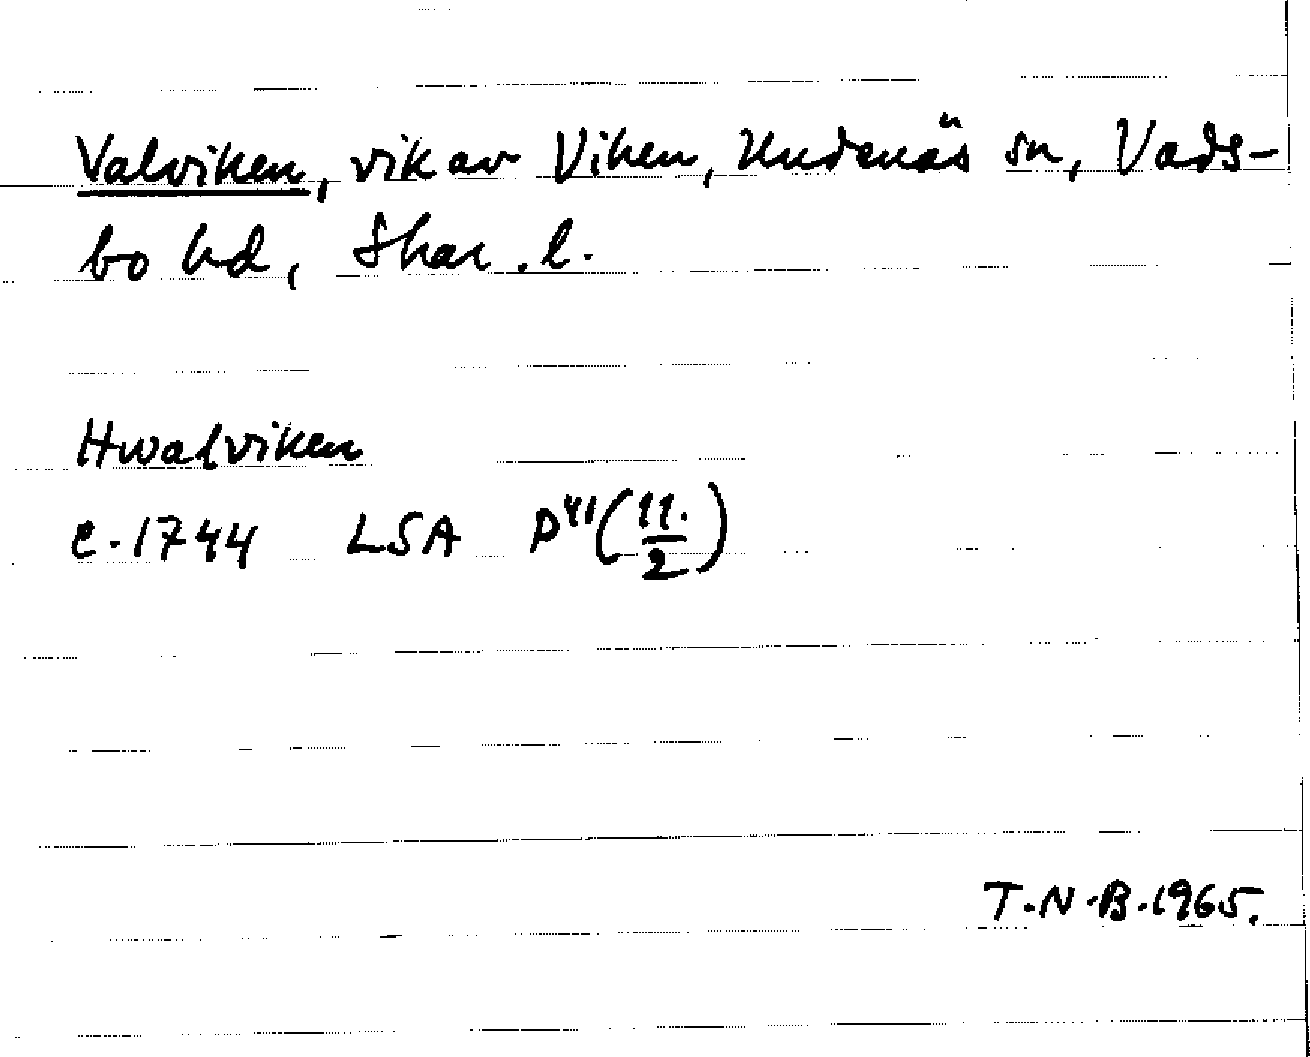 Valviken, vik av Viken, Undenäs sn, Vads-
bo hd, Skar. l.
Hwalviken
c. 1744 LSA P41 (11./2)
T.N.B. 1965.